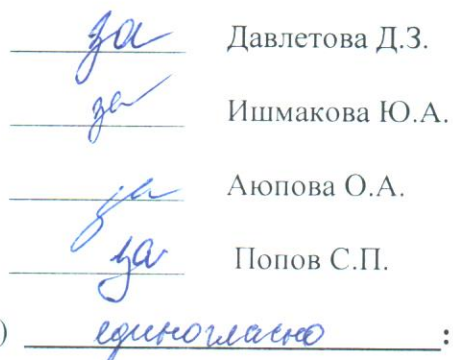 за Давлетова Д.З.
за Ишмакова Ю.А.
за Аюпова О.А.
за Попов С.П.
) единогласно :